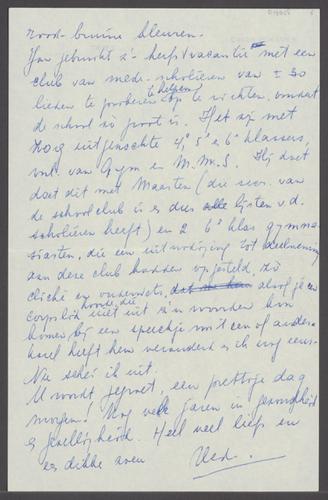 rood-bruine kleuren.
Jan gebruikt z'n herfstvacantie met een
club van mede-scholieren van ± 30
lieden te proberen helpen op te richten, omdat
de school zo groot is. Het zijn met
zorg uitgezochte 4e, 5e en 6e klassers,
van Gym en M.M.S. Hij doet
dat dit met Maarten (die secr. van
de schoolclub is en dus alle lijsten v.d.
scholieren heeft) en 2 6e klas gymna-
siasten, die een uitnodiging tot deelneming
aan deze club hadden opgesteld, zo
cliché en ouderwets, alsof je een
corpslid hoorde, die niet uit z'n woorden kon
komen, bij een speechje
heeft hem veranderd en ik nog eens.
Nu schei ik uit.
U wordt gezoet, een prettige dag
morgen! Nog vele jaren in gezondheid
en gezelligheid. Heel veel liefs en
een dikke zoen